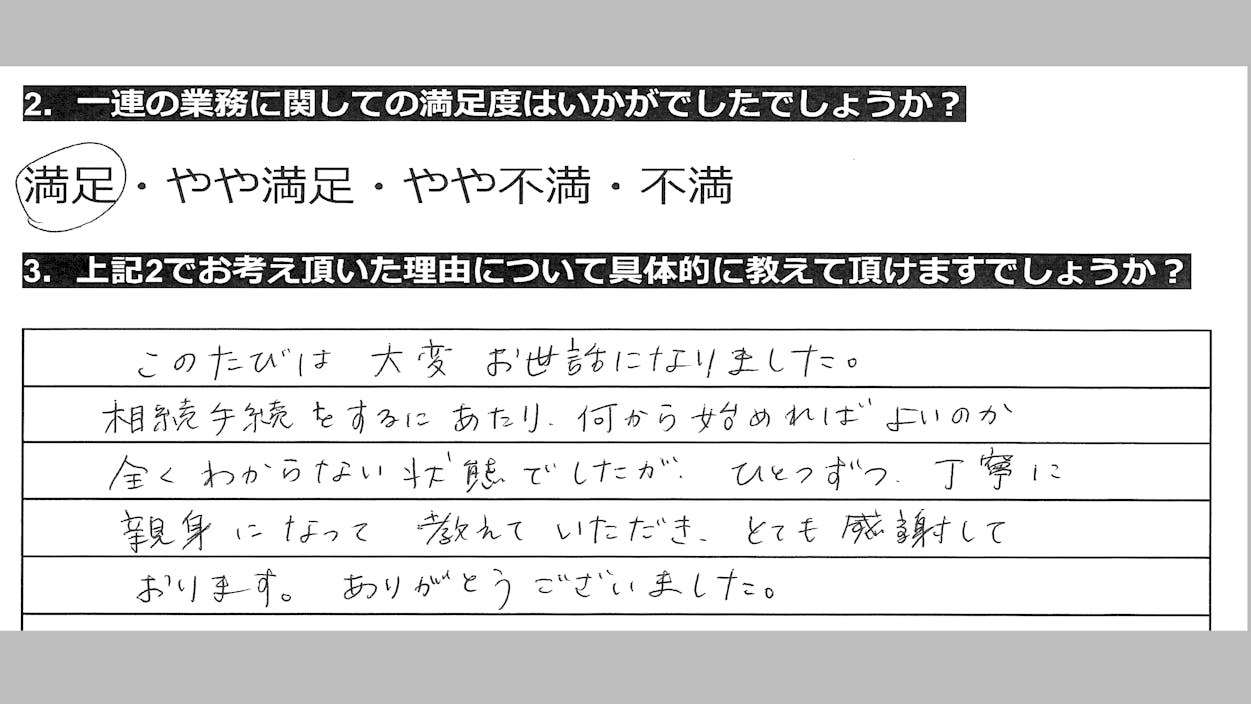 2. 一連の業務に関しての満足度はいかがでしたでしょうか？
満足・やや満足・やや不満・不満
3. 上記2でお考え頂いた理由について具体的に教えて頂けますでしょうか？
このたびは 大変 お世話になりました。
相続手続をするにあたり、何から始めればよいのか
全くわからない状態でしたが、ひとつずつ、丁寧に
親身になって 教えて いただき、とても感謝して
おります。ありがとうございました。